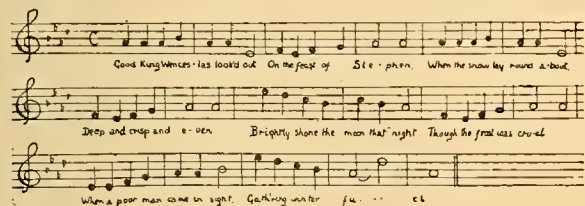 Good King Wences-las look'd out On the feast of Ste-phen, When the snow lay round a-bout,
Deep and crisp and e-ven Brightly shone the moon that night Though the frost was cru-el
When a poor man came in sight, Gath'ring winter fu. .. el